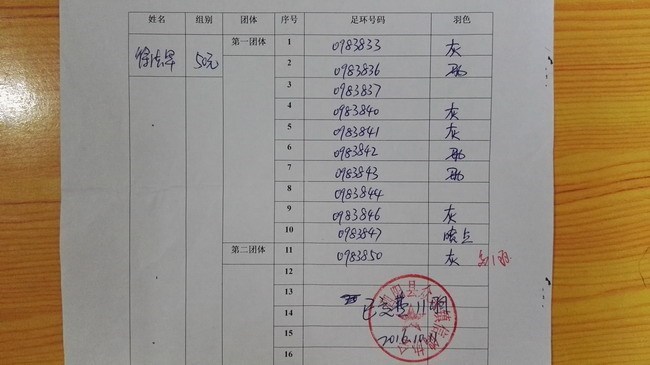 姓名 组别 团体 序号 足环号码 羽色
50元 第一团体 1 0983833 灰
2 0983836
3 0983837
4 0983840 灰
5 0983841 灰
6 0983842
7 0983843
8 0983844
9 0983846 灰
10 0983847 点
第二团体 11 0983850 灰
12
13
14 已交费 11羽
15 2016.10
16